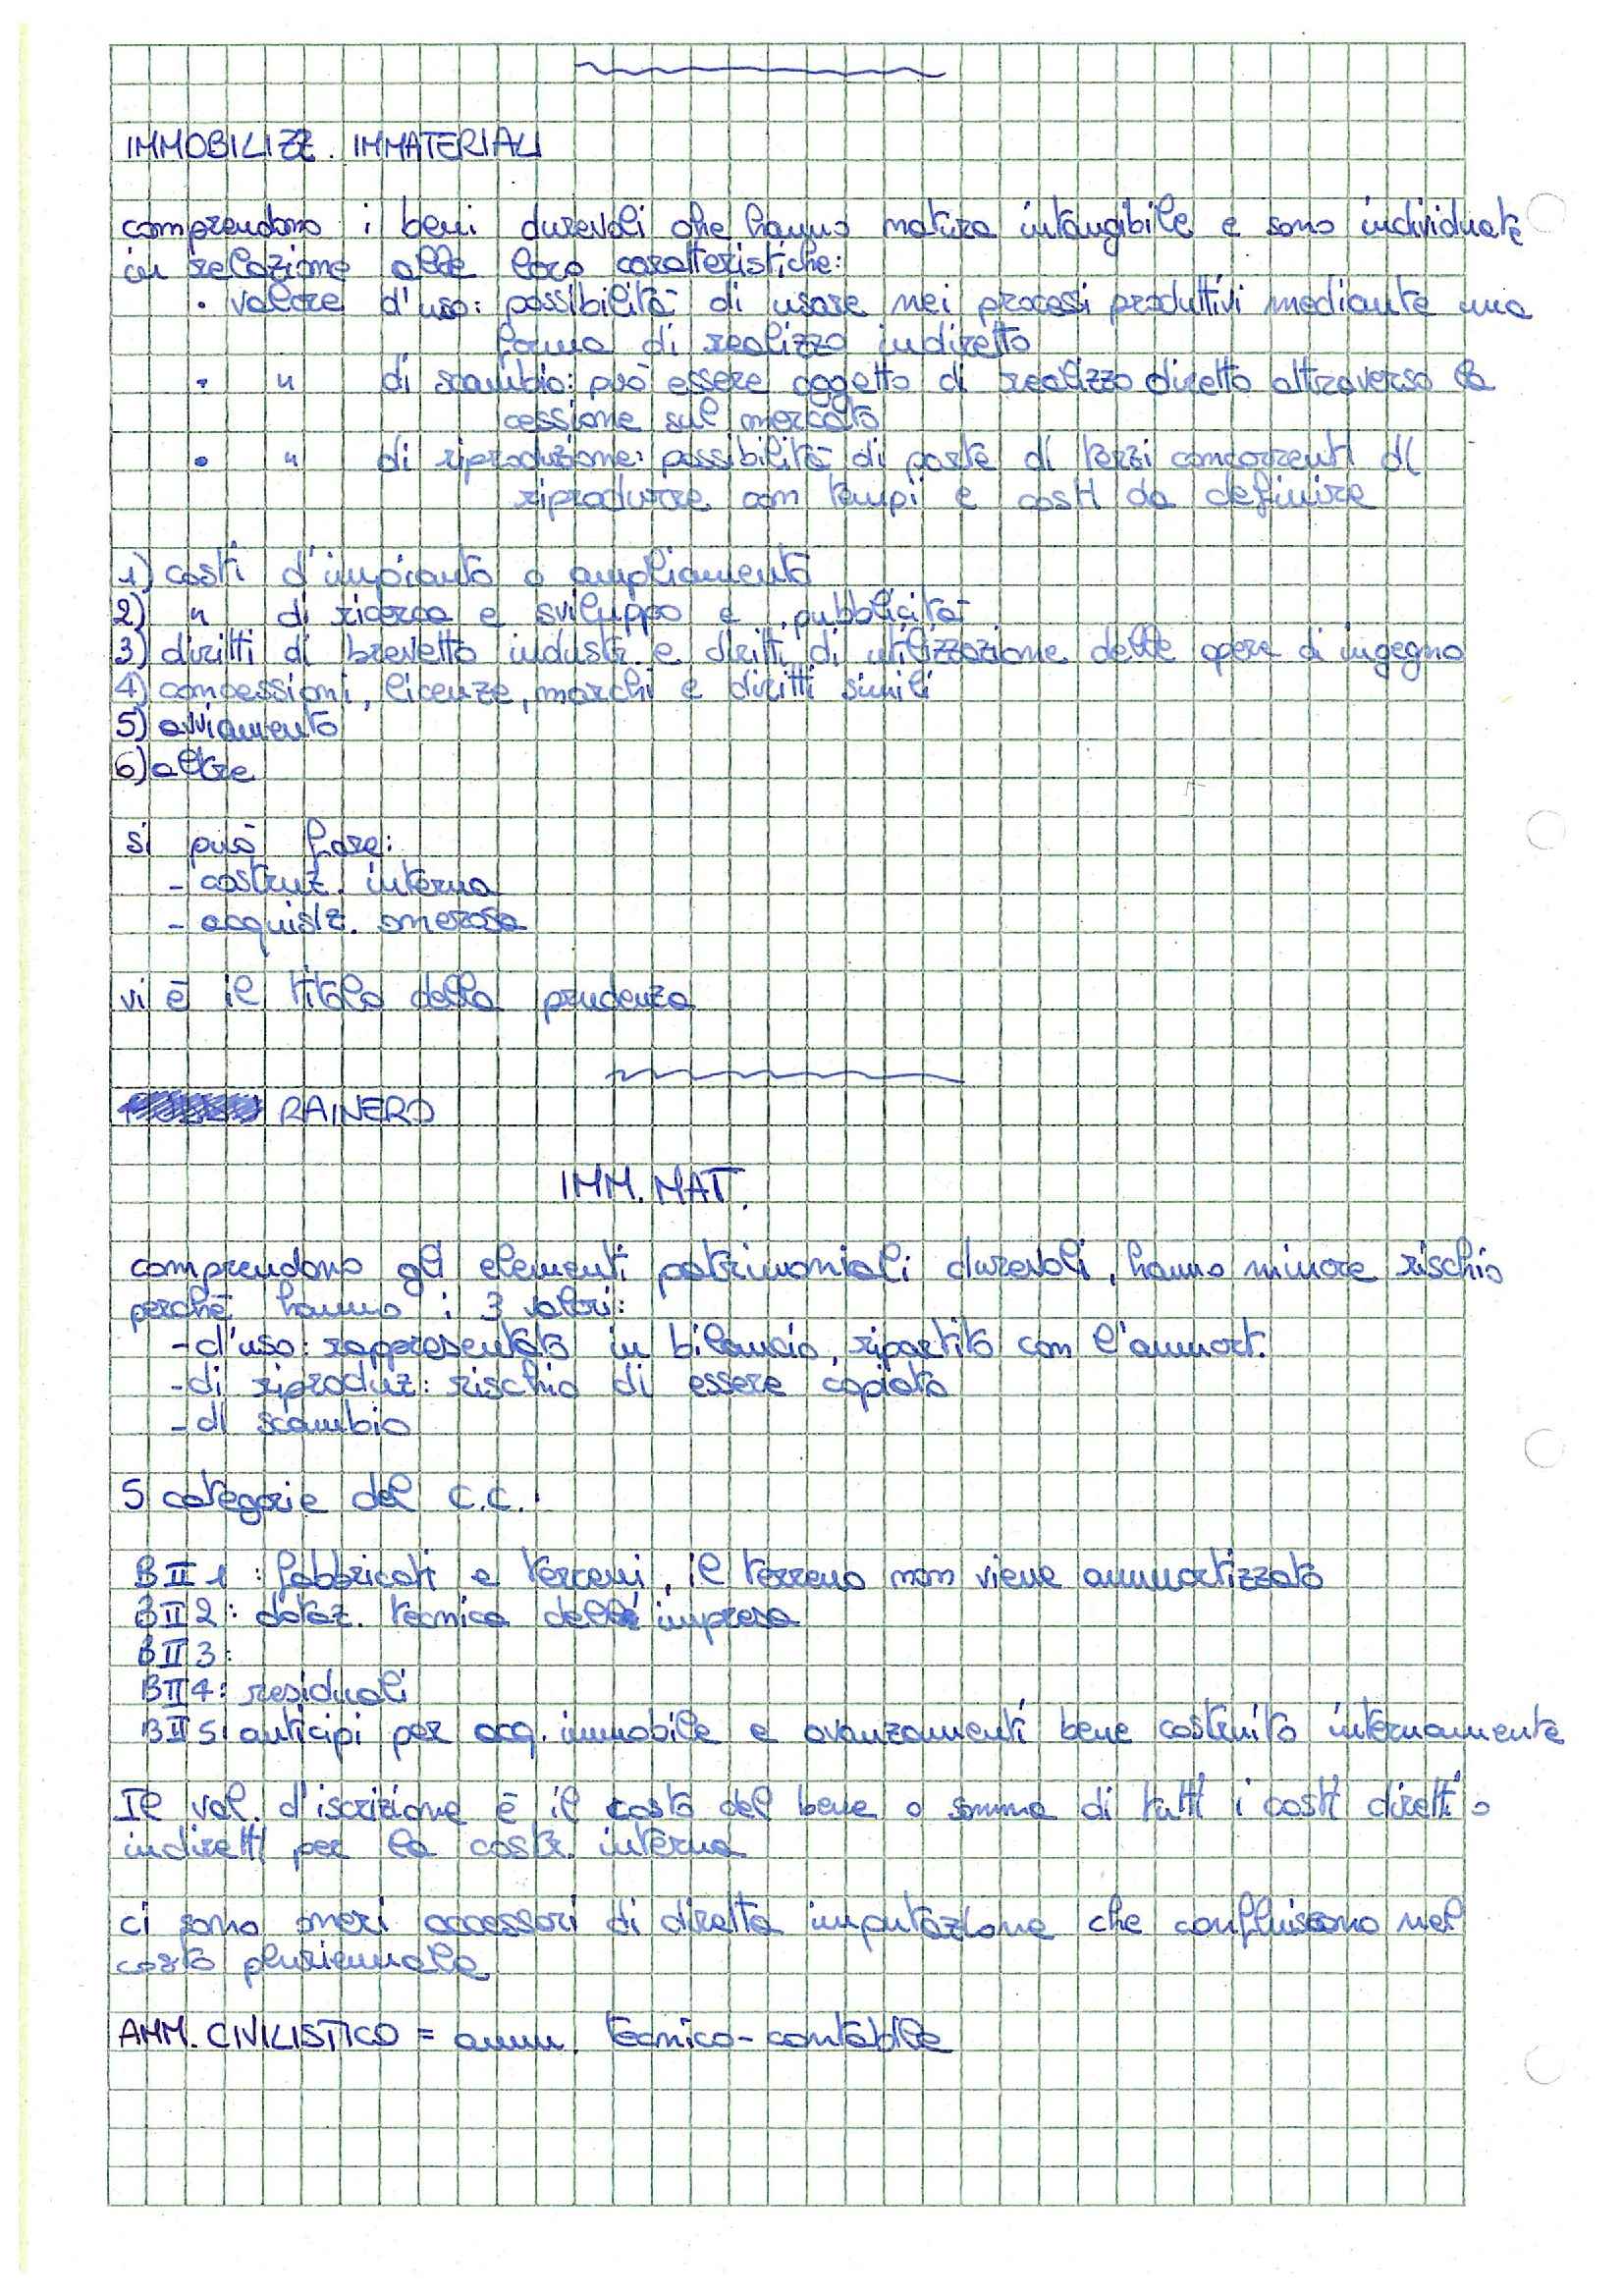 IMMOBILIZZ. IMMATERIALI
comprendono i beni durevoli che hanno natura intangibile e sono individuate
in relazione alle loro caratteristiche:
• valore d'uso: possibilità di usare nei processi produttivi mediante una
forma di realizzo indiretto
• " di scambio: può essere oggetto di realizzo diretto attraverso la
cessione sul mercato
• " di riproduzione: possibilità di parte di terzi concorrenti di
riprodurre con tempi e costi da definire
1) costi d'impianto o ampliamento
2) " di ricerca e sviluppo e pubblicità
3) diritti di brevetto industr. e diritti di utilizzazione delle opere di ingegno
4) concessioni, licenze, marchi e diritti simili
5) avviamento
6) altre
si può fare:
- costruz. interna
- acquisiz. onerosa
vi è il titolo della prudenza
RAINERO
IMM. MAT.
comprendono gli elementi patrimoniali durevoli, hanno minore rischio
perchè hanno i 3 valori:
- d'uso: rappresentato in bilancio, ripartito con l'ammort.
- di riproduz: rischio di essere copiato
- di scambio
5 categorie del C.C.:
BII1: fabbricati e terreni, il terreno non viene ammortizzato
BII2: dotaz. tecnica dell'impresa
BII3:
BII4: residuali
BII5: anticipi per acq. immobile e avanzamenti bene costruito internamente
Il val. d'iscrizione è il costo del bene o somma di tutti i costi diretti o
indiretti per la costr. interna
ci sono oneri accessori di diretta imputazione che confluiscono nel
costo pluriennale
AMM. CIVILISTICO = amm. tecnico-contabile